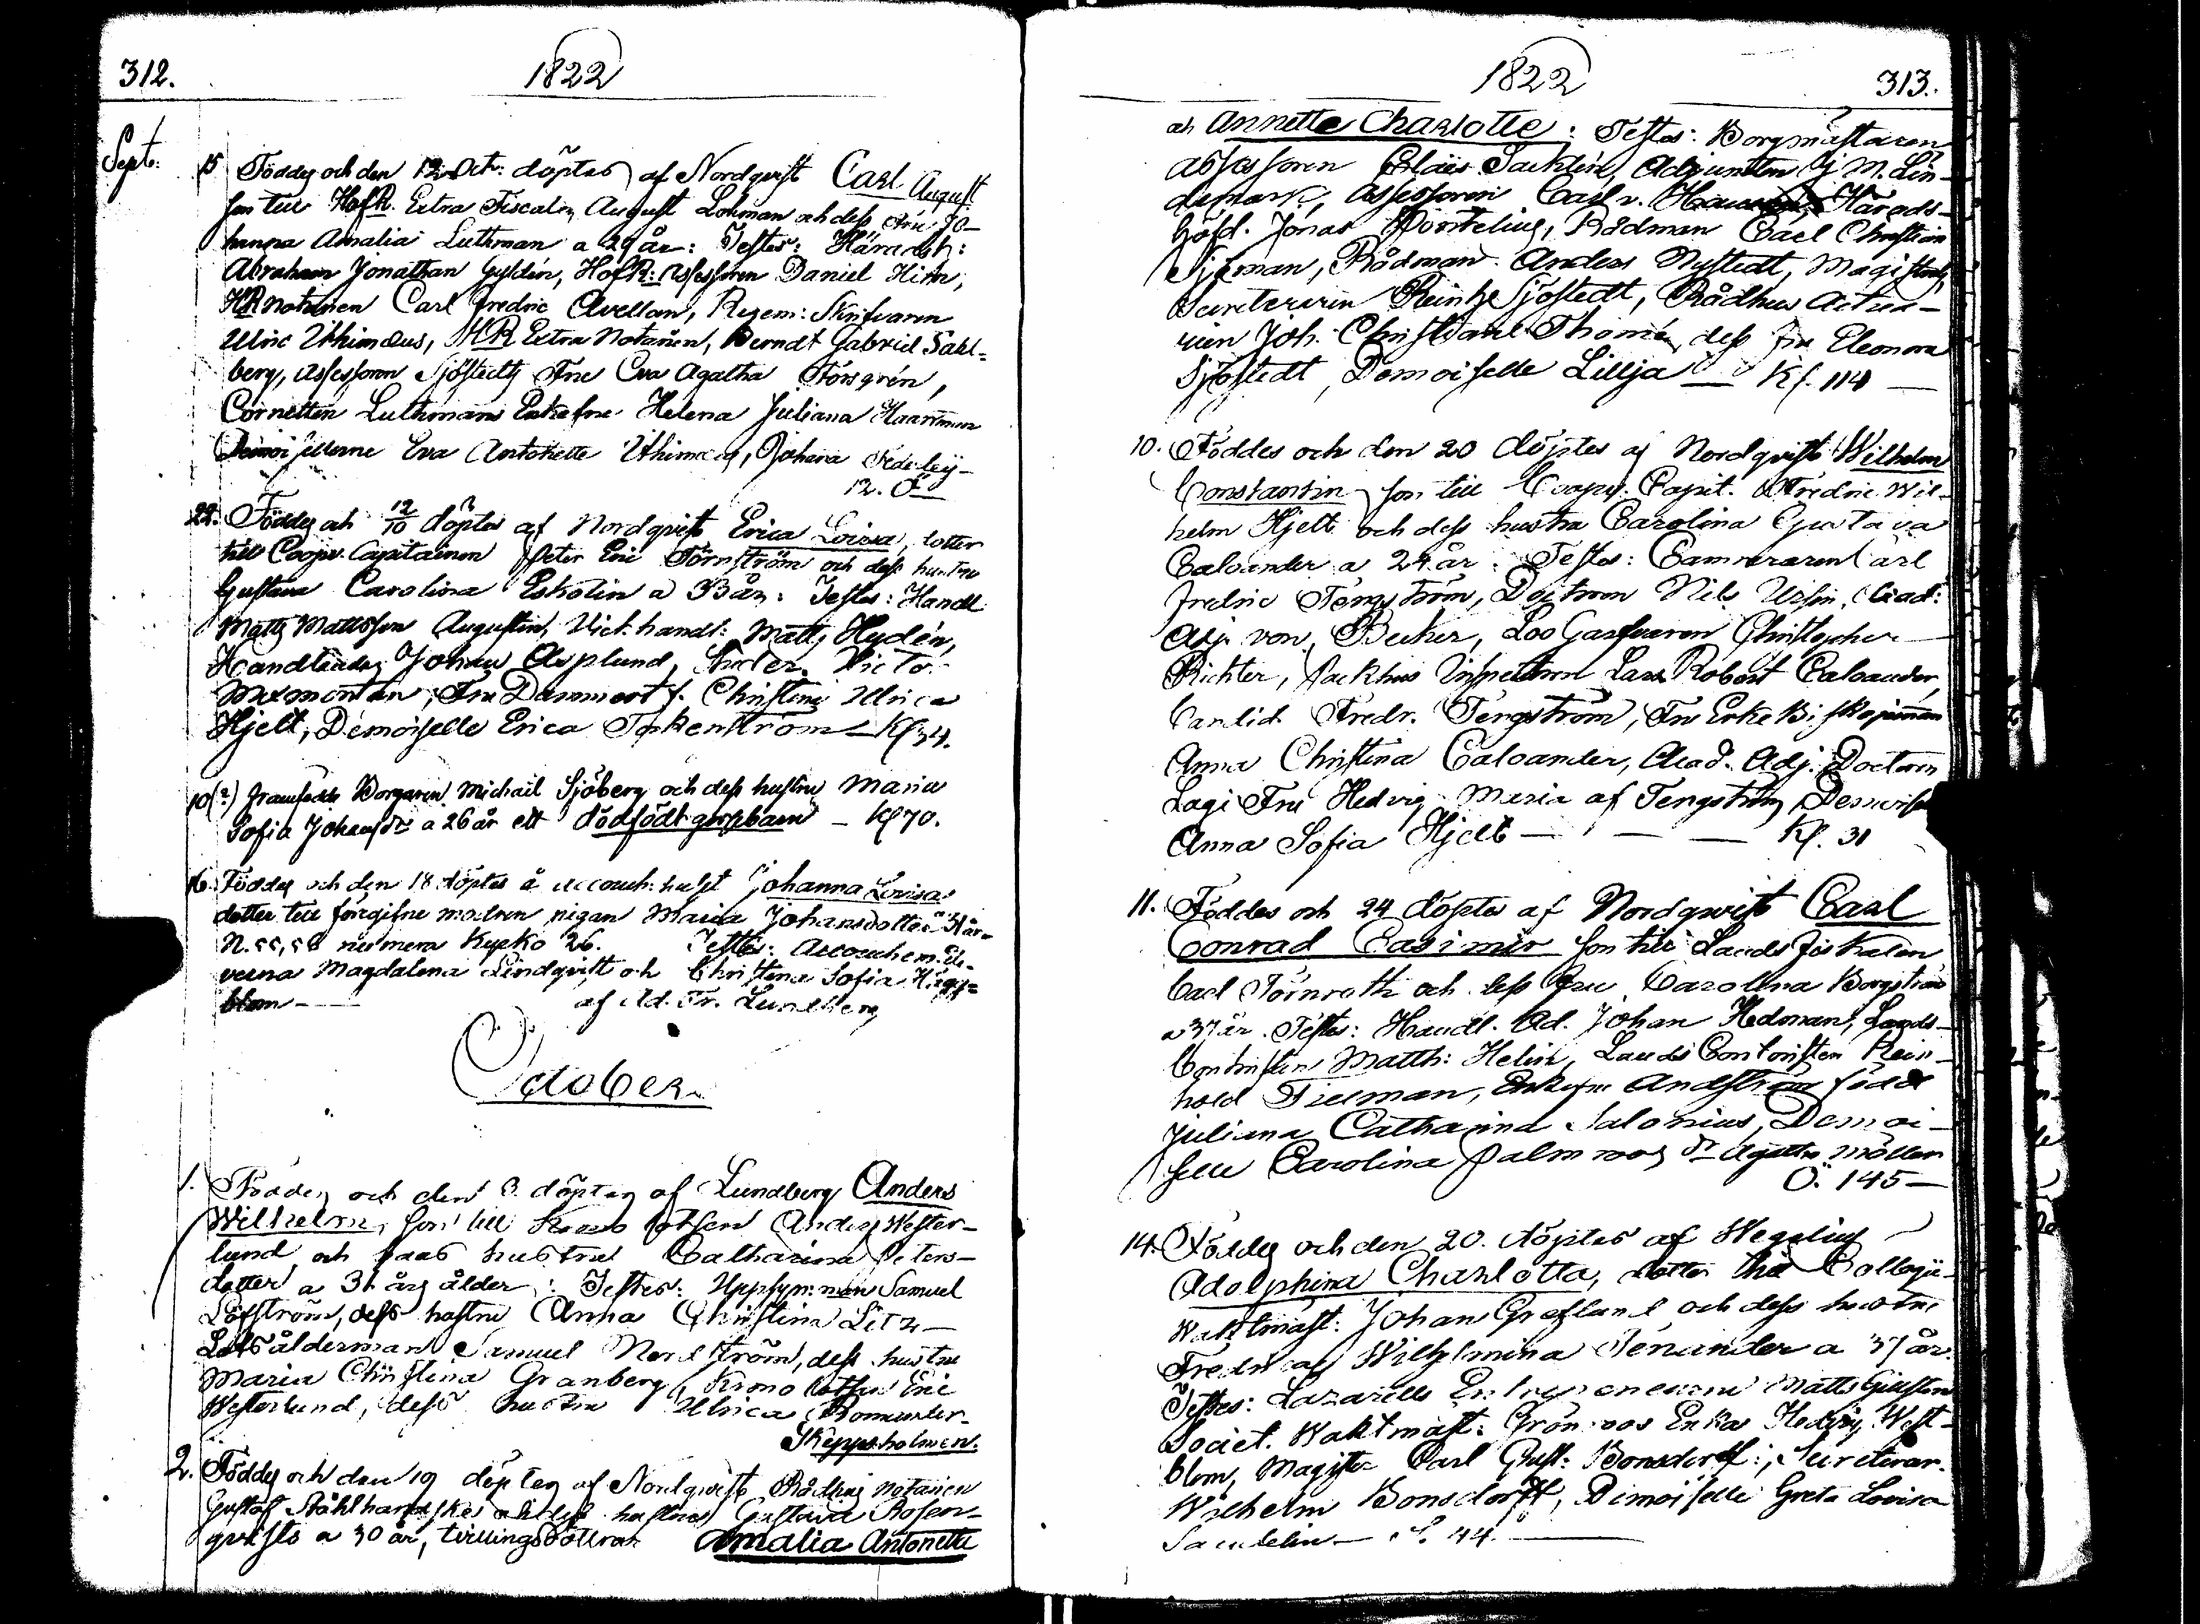 312.
1822
Sept:
15 Föddes och den 12 Octr. döptes af Nordqvist Carl August
son till HofR. Extra Fiscalen August Lohman och dess fru Jo-
hanna Amalia Luthman a 29 år: Testes: Häradsh:
Abraham Jonathan Gyldén, HofR: Assessoren Daniel Hirn,
HR Notarien Carl Fredric Avellan, Regem: Skrifvaren
Ulric Ithimæus, HR Extra Notarien, Berndt Gabriel Sahl-
berg, Assessoren Sjöstedts Fru Eva Agatha Forsgrén,
Cornetten Luthmans Enkefru Helena Juliana Haartman
Demoisellerne Eva Antonette Ithimæus, Johana
12. Ö
22. Föddes och 12/10 döptes af Nordqvist Erica Lovisa, dotter
till Coopv. Capitainen Peter Eric Törnström och dess hustru
Gustava Carolina Eskolin a 33 år: Testes: Handl
Matts Mattsson Augustin, Vict. handl: Matts Hydén,
Handlanden Johan Asplund, Victo.
Fru Dammert f. Christina Ulrica
Hjelt, Demoiselle Erica Torkenström Kl 34.
10(?) framfödde Borgaren Michail Sjöberg och dess hustru Maria
Sofia Johansdr a 26 år ett dödfödt gossebarn - Kl 70.
16. Föddes och den 18 döptes å accouch: huset Johanna Lovisa
dotter till föregifne modren pigan Maria Johansdotter år
N. 55, 58 numera Kyrko 26. Testes: Accouchem. Ele-
verna Magdalena Lindqvist och Christina Sofia Hägg-
blom — af Ad. Fr. Lundberg
October.
1. Föddes och den 3. döptes af Lundberg Anders
Wilhelm, son till Krono lotsen Anders Wester-
lund och hans hustru Catharina Peters-
dotter a 31 års ålder: Testes: Uppsyn: man Samuel
Löfström, dess hustru Anna Christina Litz
Lotsålderman Samuel Nordström, dess hustru
Maria Christina Granberg, Krono lotsen Eric
Westerlund, dess hustru Ulrica
Skeppsholmen.
2. Föddes och den 19 döptes af Nordqvist Rådhus notarien
Gustaf Stålhandskes och dess hustrus Gustava Rosen-
qvists a 30 år, tvillingsdöttrar Amalia Antonette
1822
313.
och Annette Charlotte: Testes: Borgmästaren
Assessoren Claës Sacklén, Adjuncten J M. Lin-
demark, Assessoren Carl v. Härads-
höfd. Jonas Rådman Carl Christian
Sjöman, Rådman Anders Nystedt, Magistrats
Secreteraren Reinh. Sjöstedt, Rådhus Actua-
rien Joh. Christian Thomé, dess fru Eleonora
Sjöstedt, Demoiselle Lillja — Kl. 114 —
10. Föddes och den 20 döptes af Nordqvist Wilhelm
Constantin son till Coopv. Capit. Fredric Wil-
helm Hjelt och dess hustru Carolina Gustava
Caloander a 24 år: Testes: Cammereraren Carl
Fredric Tengström, Doctoren Nils Ursin, Acad:
Adj. von Becker, Loo Garfvaren Christopher
Richter, Packhus Inspectoren Lars Robert Caloander,
Candid. Fredr. Tengström, Fru Erke Biskopinnan
Anna Christina Caloander, Acad. Adj: Doctorn
Lagi Fru Hedvig Maria af Tengström, Demoiselle
Anna Sofia Hjelt — — — Kl. 31
11. Föddes och 24 döptes af Nordqvist Carl
Conrad Casimir son till Lands Fiskalen
Carl Törnroth och dess fru Carolina Borgström
a 37 år. Testes: Handl. Ad. Johan Hedman, Lands-
Contoristen Matth: Helin, Lands Contoristen Rein-
hold Tileman, Enkefru Andström född
Juliana Catharina Salonius, Demoi-
selle Carolina Palmroos, Dr Agatha Möller
Ö. 145 —
14. Föddes och den 20. döptes af Wegelius
Adolphina Charlotta, dotter till Collegii
Waktmäst: Johan Grefland och dess hustru
Fredrica Wilhelmina Tenander a 37 år.
Testes: Lazaretts Entreprenören Matts Gustén
Societ. Waktmäst: Grönroos Enka Hedvig West-
blom, Magister Carl Gust: Bonsdorff:, Secreterar.
Wilhelm Bonsdorff, Demoiselle Greta Lovisa
Sandelin — 44. —